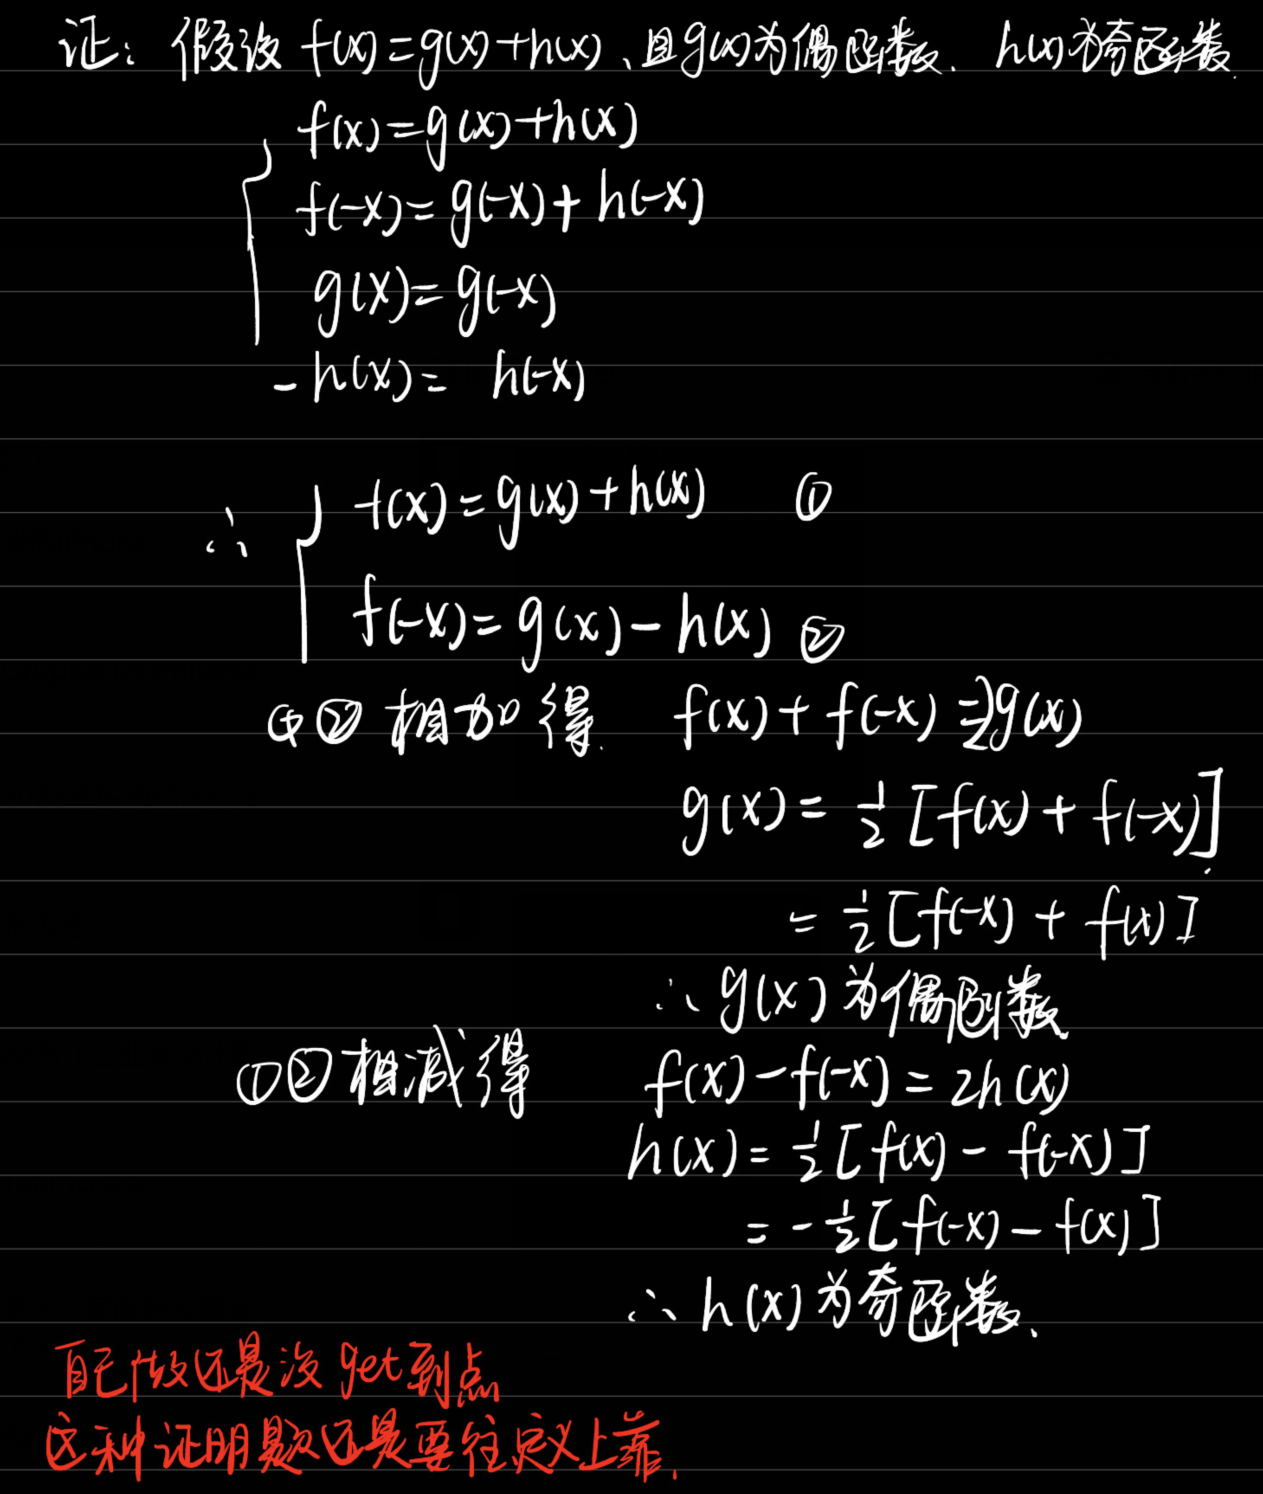 证: 假设 f(x)=g(x)+h(x)、且g(x)为偶函数. h(x)为奇函数.
f(x)=g(x)+h(x)
f(-x)=g(-x)+h(-x)
g(x)=g(-x)
-h(x)= h(-x)
∴ f(x)=g(x)+h(x) ①
f(-x)=g(x)-h(x) ②
①② 相加得. f(x)+f(-x)=2g(x)
g(x)= 1/2 [f(x)+f(-x)]
= 1/2 [f(-x)+f(x)]
∴ g(x) 为偶函数
①② 相减得 f(x)-f(-x)=2h(x)
h(x)= 1/2 [f(x)-f(-x)]
= - 1/2 [f(-x)-f(x)]
∴ h(x) 为奇函数.
自己做还是没 get 到点
这种证明题还是要往定义上靠.